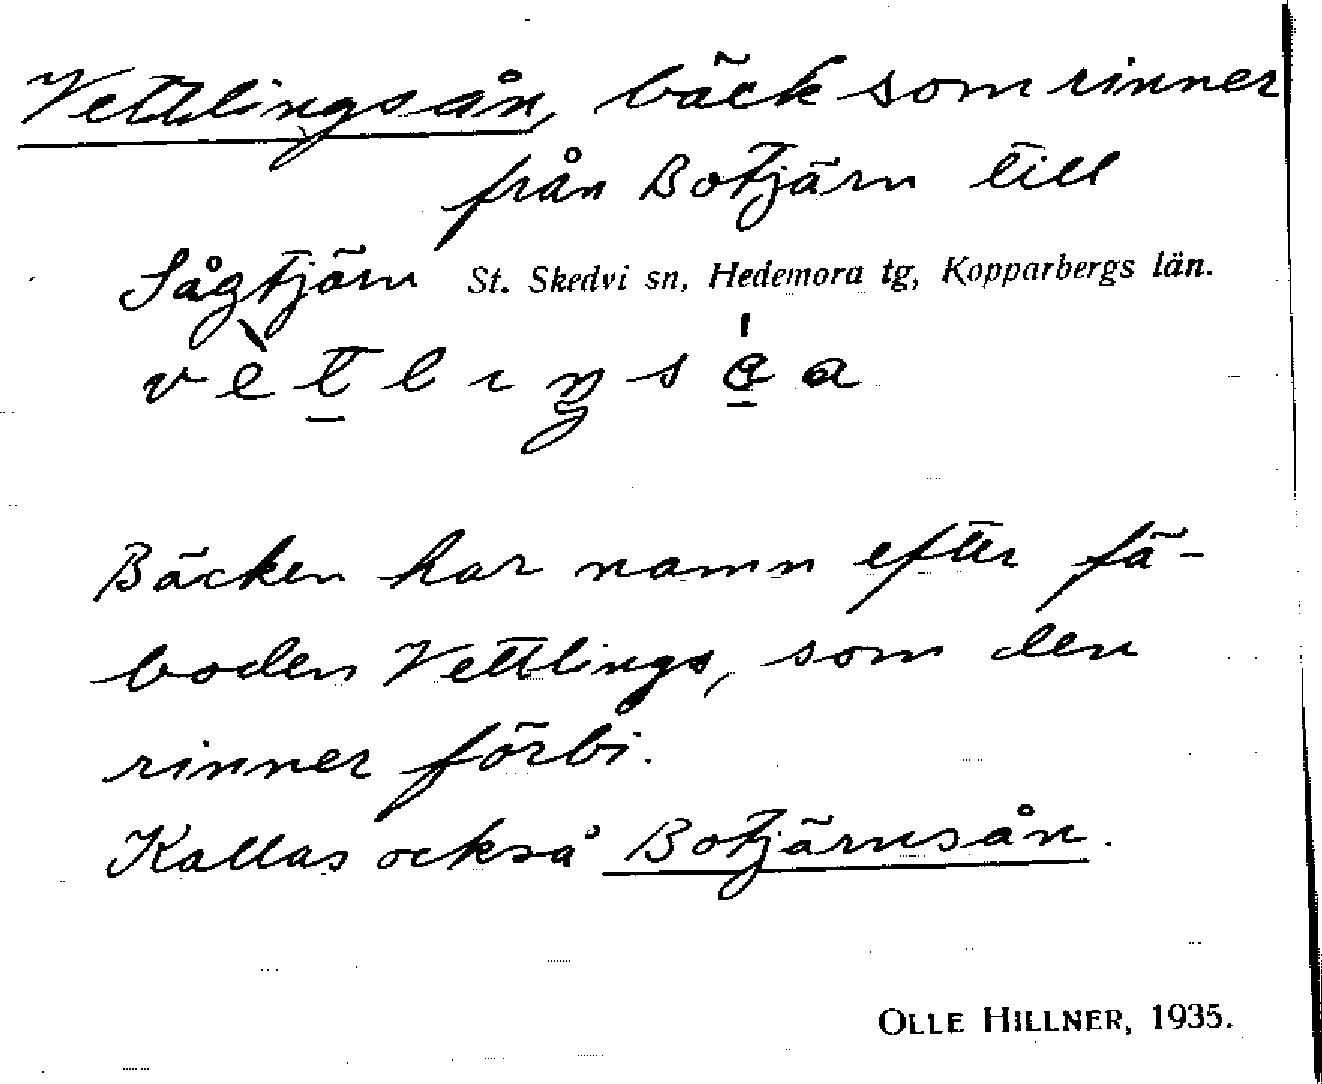 Vettlingsån, bäck som rinner
från Botjärn till
Sågtjärn St. Skedvi sn, Hedemora tg, Kopparbergs län.
Bäcken har namn efter fä-
boden Vettlings, som den
rinner förbi.
Kallas också Botjärnsån.
OLLE HILLNER, 1935.